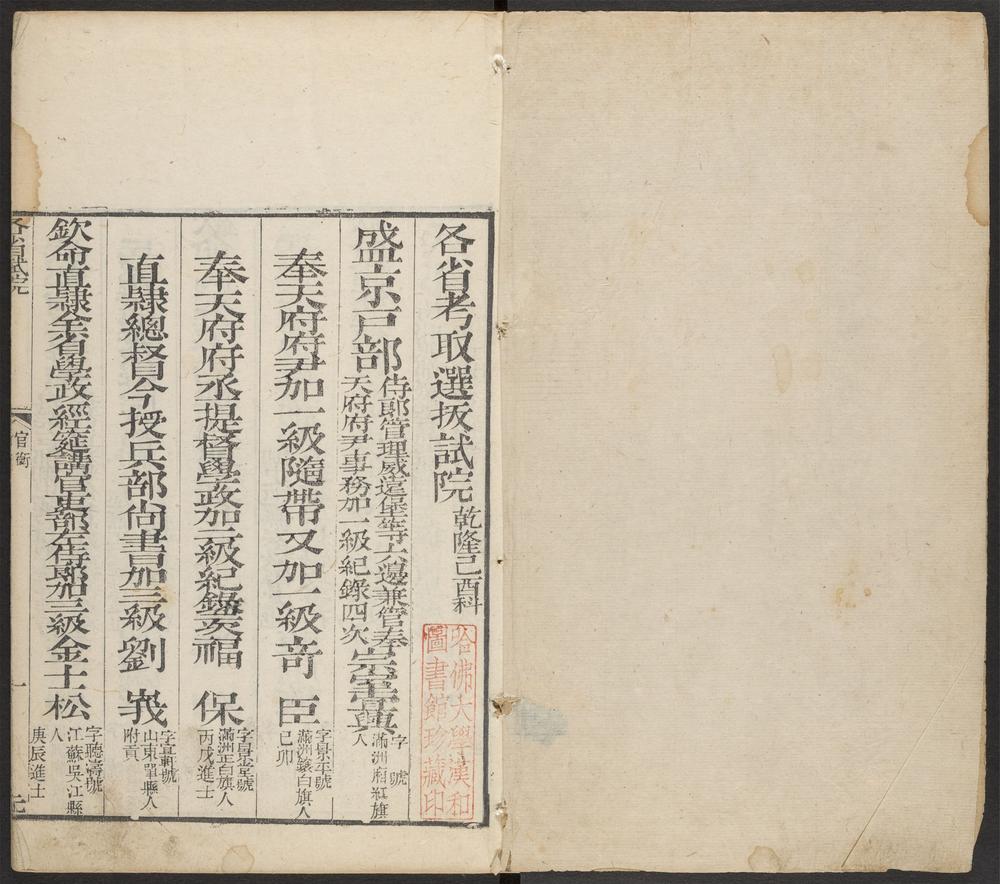 各省考取選拔試院 乾隆己酉科
哈佛大學漢和
圖書館珍藏印
盛京戶部侍郎管理威遠堡等六邊兼管奉
天府府尹事務加一級紀錄四次宗室宜興字 號
滿洲廂紅旗
人
奉天府府尹加一級隨帶又加一級奇 臣字景平號
滿洲鑲白旗人
己卯
奉天府府丞提督學政加三級紀錄三次福 保字景堂號
滿洲正白旗人
丙戌進士
直隸總督今授兵部尚書加三級劉 峩字宜軒號
山東單縣人
附貢
欽命直隸全省學政經筵講官吏部左侍郎加三級金士松字聽濤號
江蘇吳江縣
人
庚辰進士
各省試院
官銜
一
元